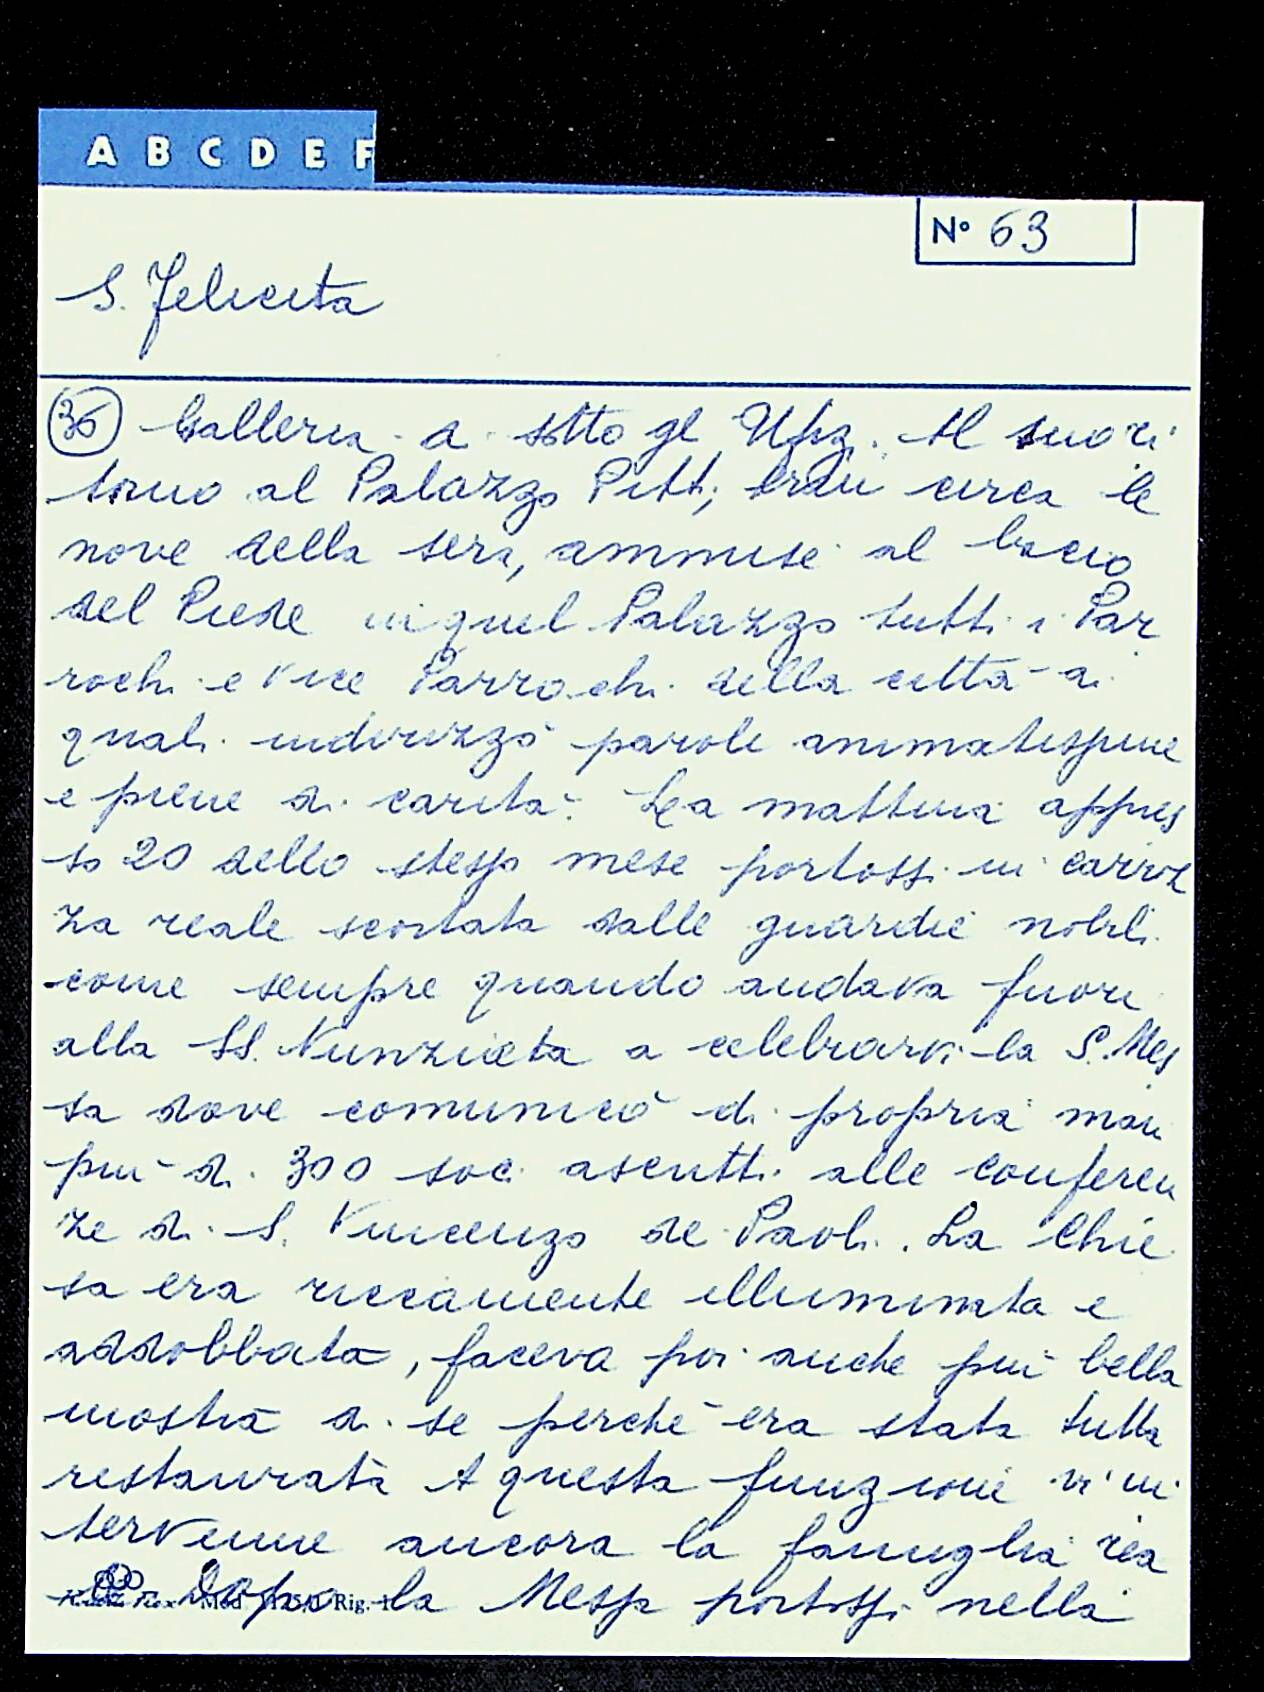 A B C D E F
N° 63
S. Felicita
36 Galleria a sotto gl Ufiz. Al suo ri
torno al Palazzo Pitti, eran circa le
nove della sera, ammise al bacio
del Piede in quel Palazzo tutti i Par
rochi e Vice Parrochi della città ai
quali indirizzò parole animatissime
e piene di carità. La mattina appres
so 20 dello stesso mese portossi in carroz
za reale scortata dalle guardie nobili
come sempre quando andava fuori
alla SS. Nunziata a celebrarvi la S. Mes
sa dove comunicò di propria man
più di 300 soci ascritti alle conferen
ze di S. Vincenzo de Paoli. La Chie
sa era riccamente illuminata e
addobbata, faceva poi anche più bella
mostra di se perchè era stata tutta
restaurata A questa funzione vi in
tervenne ancora la famiglia rea
Dopo la Messa portossi nella
Rig. 1